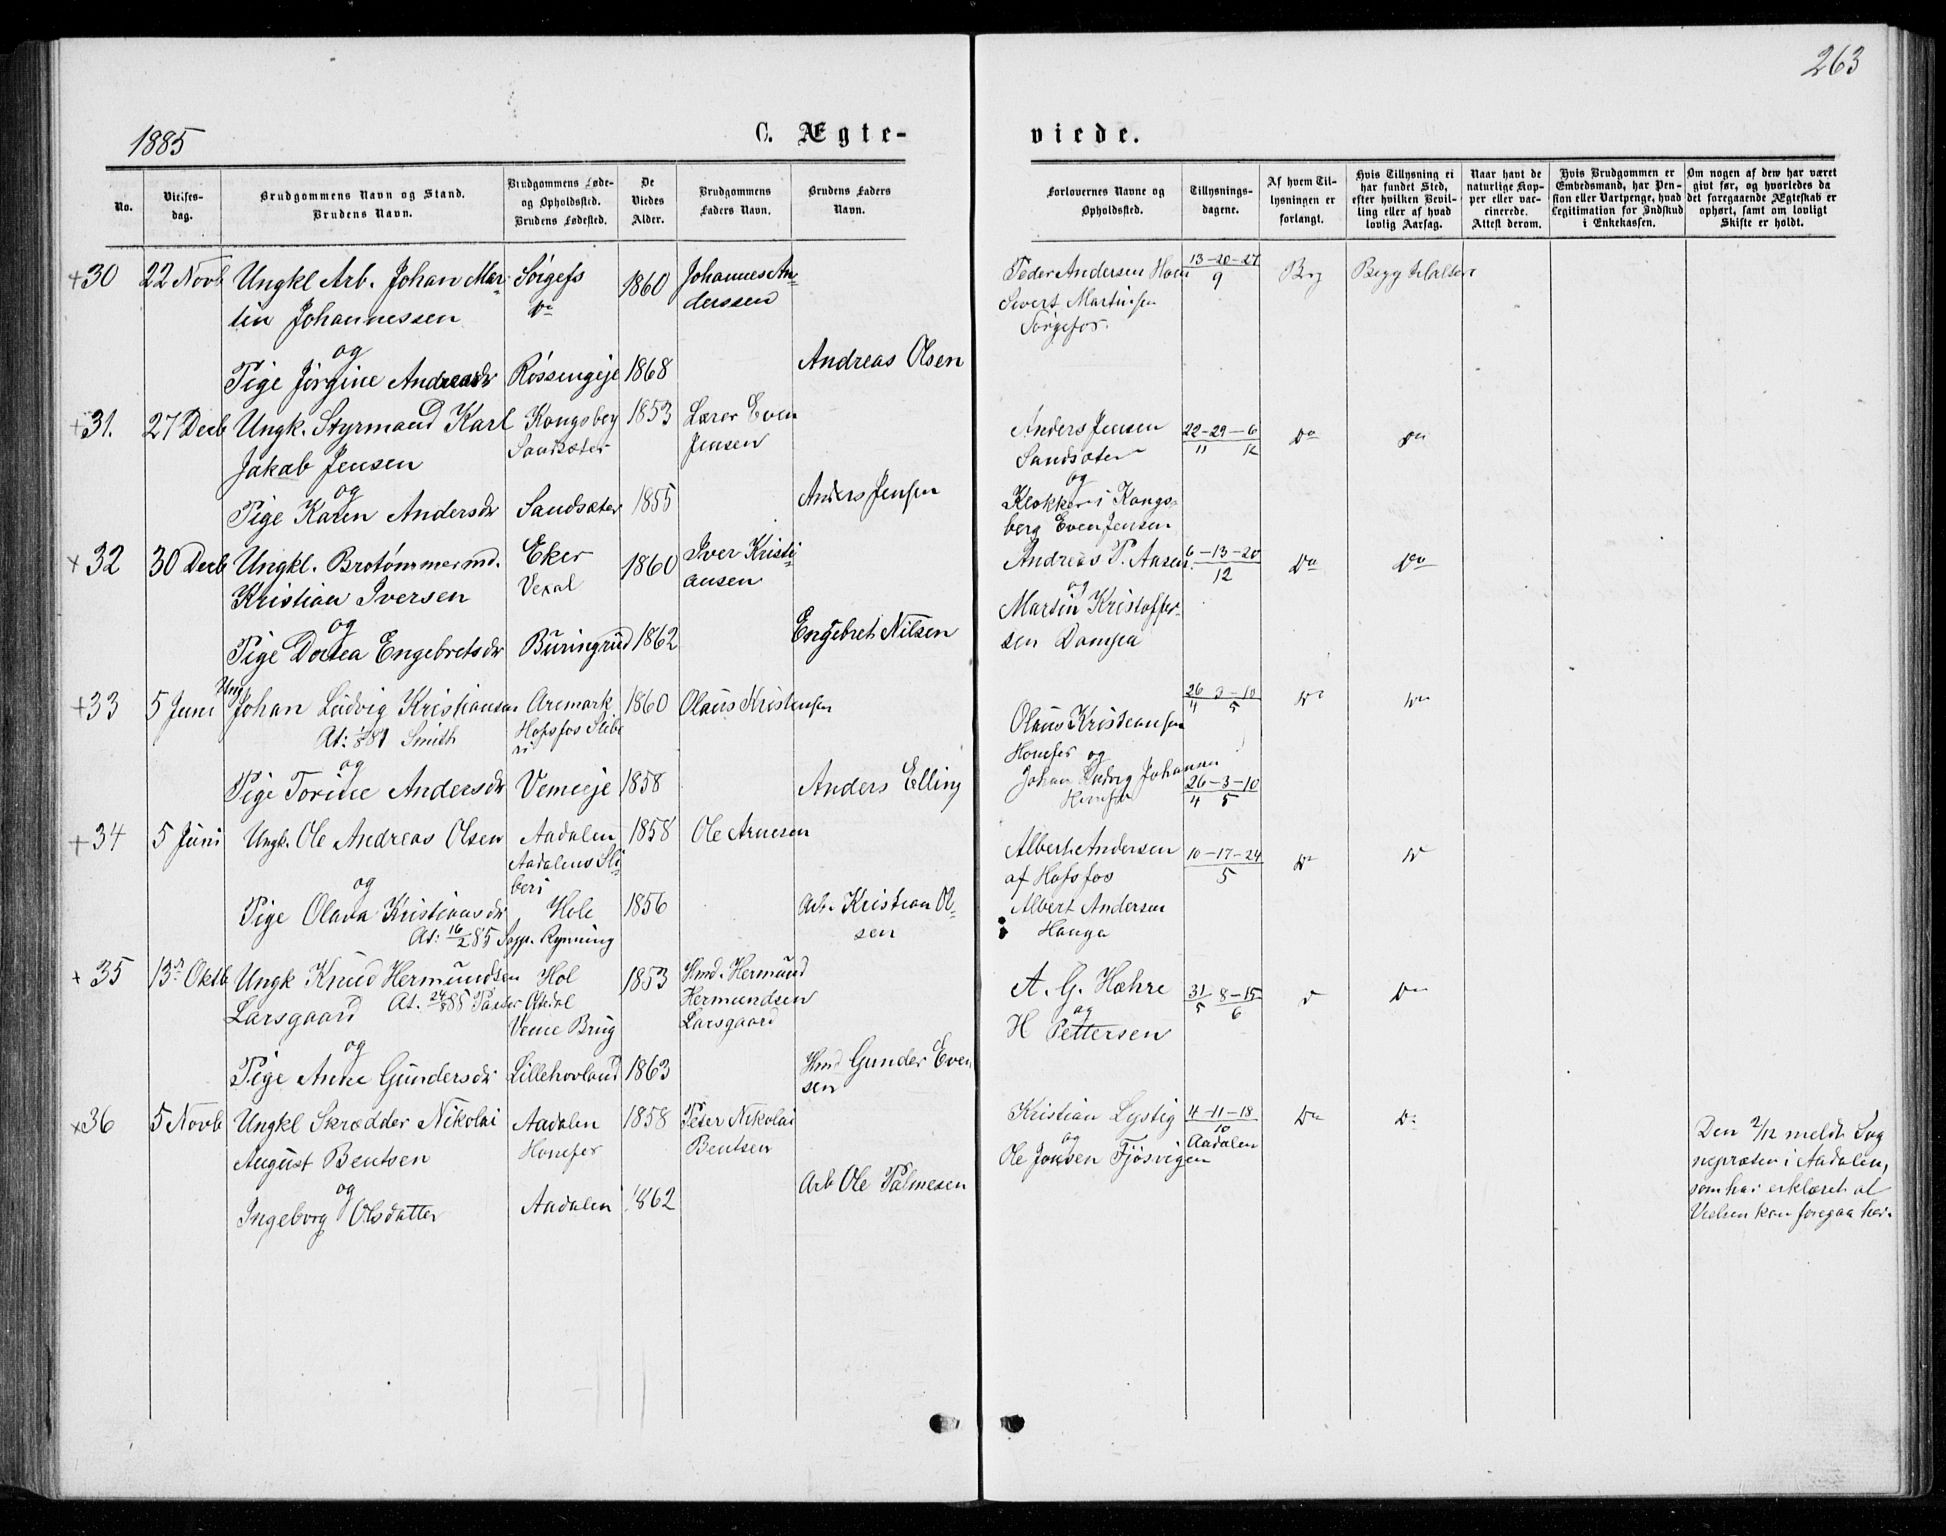 263
1885
C. Ægte-
viede.
No.
Vielses-
dag.
Brudgommens Navn og Stand.
Brudens Navn.
Brudgommens Føde-
og Opholdssted.
Brudens Fødested.
De
Viedes
Alder.
Brudgommens
Faders Navn.
Brudens Faders
Navn.
Forlovernes Navne og
Opholdssted.
Tillysnings-
dagene.
Af hvem Til-
lysningen er
forlangt.
Hvis Tillysning ei
har fundet Sted,
efter hvilken Bevil-
ling eller af hvad
lovlig Aarsag.
Naar havt de
naturlige Kop-
per eller vac-
cinerede.
Attest derom.
Hvis Brudgommen er
Embedsmand, har Pen-
sion eller Vartpenge, hvad
Legitimation for Indskud
i Enkekassen.
Om nogen af dem har været
givt før, og hvorledes da
det foregaaende Ægteskab er
ophørt, samt om lovligt
Skifte er holdt.
+30 22 Novb Ungkl Arb. Johan Mar- Sørgefs 1860 Johannes An- Peder Andersen 13-20-27 Brg
tin Johannessen Do derssen Sivert Martinsen 9
Sørgefos.
og
Pige Jørgine Andreasdr Rössengeje 1868 Andreas Olsen
+31. 27 Decb Ungk. Styrmand Karl Kongsberg 1853 Lærer Even Anders Jensen 22-29-6 Do Do
Jakab Jensen Sandsæter Jensen Sandsæter 11 12
og og
Pige Karen Andersdr Sandsæter 1855 Anders Jensen Klokker i Kongs-
berg Even Jensen
+32 30 Decb Ungkl. Brotømmermd. Eker 1860 Iver Kristi- Andreas P. Aasen 6-13-20 Do Do
Kristian Iversen Vexal ansen 12
og og
Pige Dortea Engebretsdr Buringrud 1862 Engebret Nilsen Martin Kristoffer-
sen Dampa
+33 5 Juni Ung Johan Ludvig Kristiansen Aremark 1860 Olaus Kristensen 26 3-10 Do Do
At: Smith Hofsfos Slibe 4 5
ri Olaus Kristiansen
og Hønefos og
Pige Torine Andersdr Vemeeje 1858 Anders Elling Johan Ludvig Johansen
26-3-10
4 5
+34 5 Juni Ungk. Ole Andreas Olsen Aadalen 1858 Ole Arnesen Albert Andersen 10-17-24 Do Do
Aadalens Sli- af Hofsfos 5
beri
og
Pige Olava Kristiansdr Hole 1856 Arb. Kristian Ol- Albert Andersen
At: 16/2 85 Sogp. Rynning sen Hauga
+35 13de Oktb Ungk Knud Hermundsen Hol 1853 Hmd. Hermund A. G. Hæhre 31 8-15 Do Do
Larsgaard At. 24/8 85 Aadal Hermundsen og 5 6
Veme Brug Larsgaard H Pettersen
og
Pige Anne Gundersdr Lillehovland 1863 Hmd Gunder Even
sen
+36 5 Novb Ungkl Skrædder Nikolai Aadalen 1858 Peter Nikolai Kristian Lystig 4-11-18 Do Do
August Bentsen Honefos Bentsen og 10
Ole Jonsen Fjösvigen Aadalen
og
Ingeborg Olsdatter Aadalen 1862 Arb Ole Palmesen
Den 2/12 meldt Sog
nepræsten i Aadalen,
som har erklæret at
Vielsen kan foregaa her.